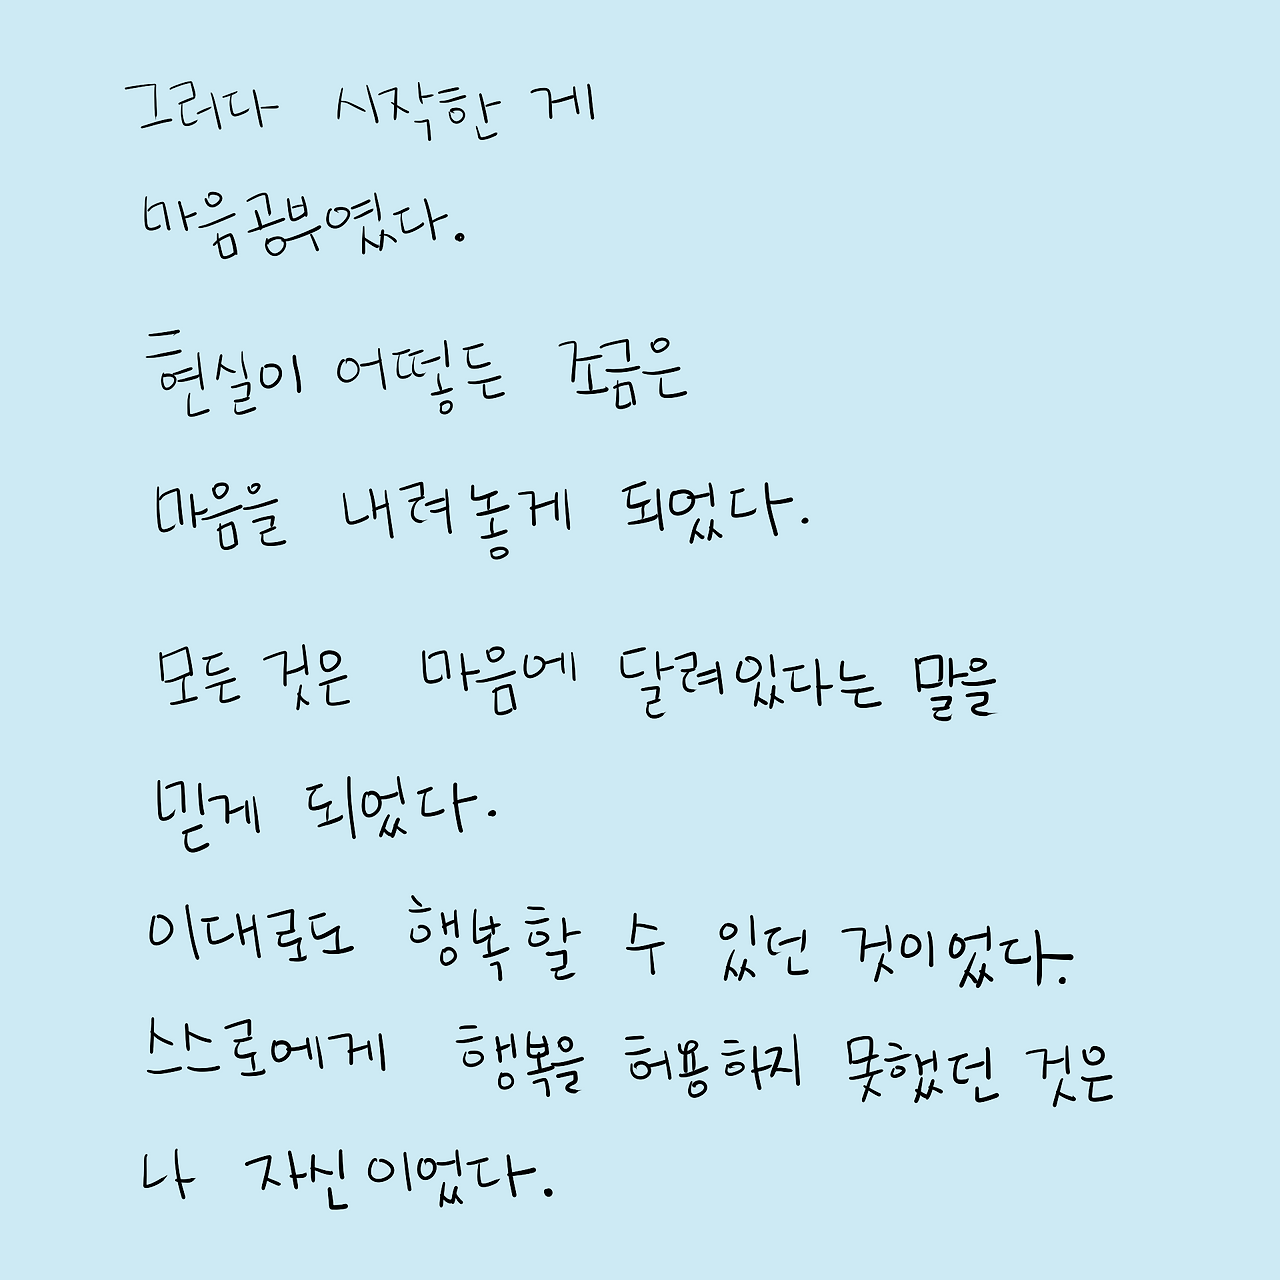 그러다 시작한 게
마음공부였다.
현실이 어떻든 조금은
마음을 내려놓게 되었다.
모든 것은 마음에 달려있다는 말을
믿게 되었다.
이대로도 행복할 수 있던 것이었다.
스스로에게 행복을 허용하지 못했던 것은
나 자신이었다.